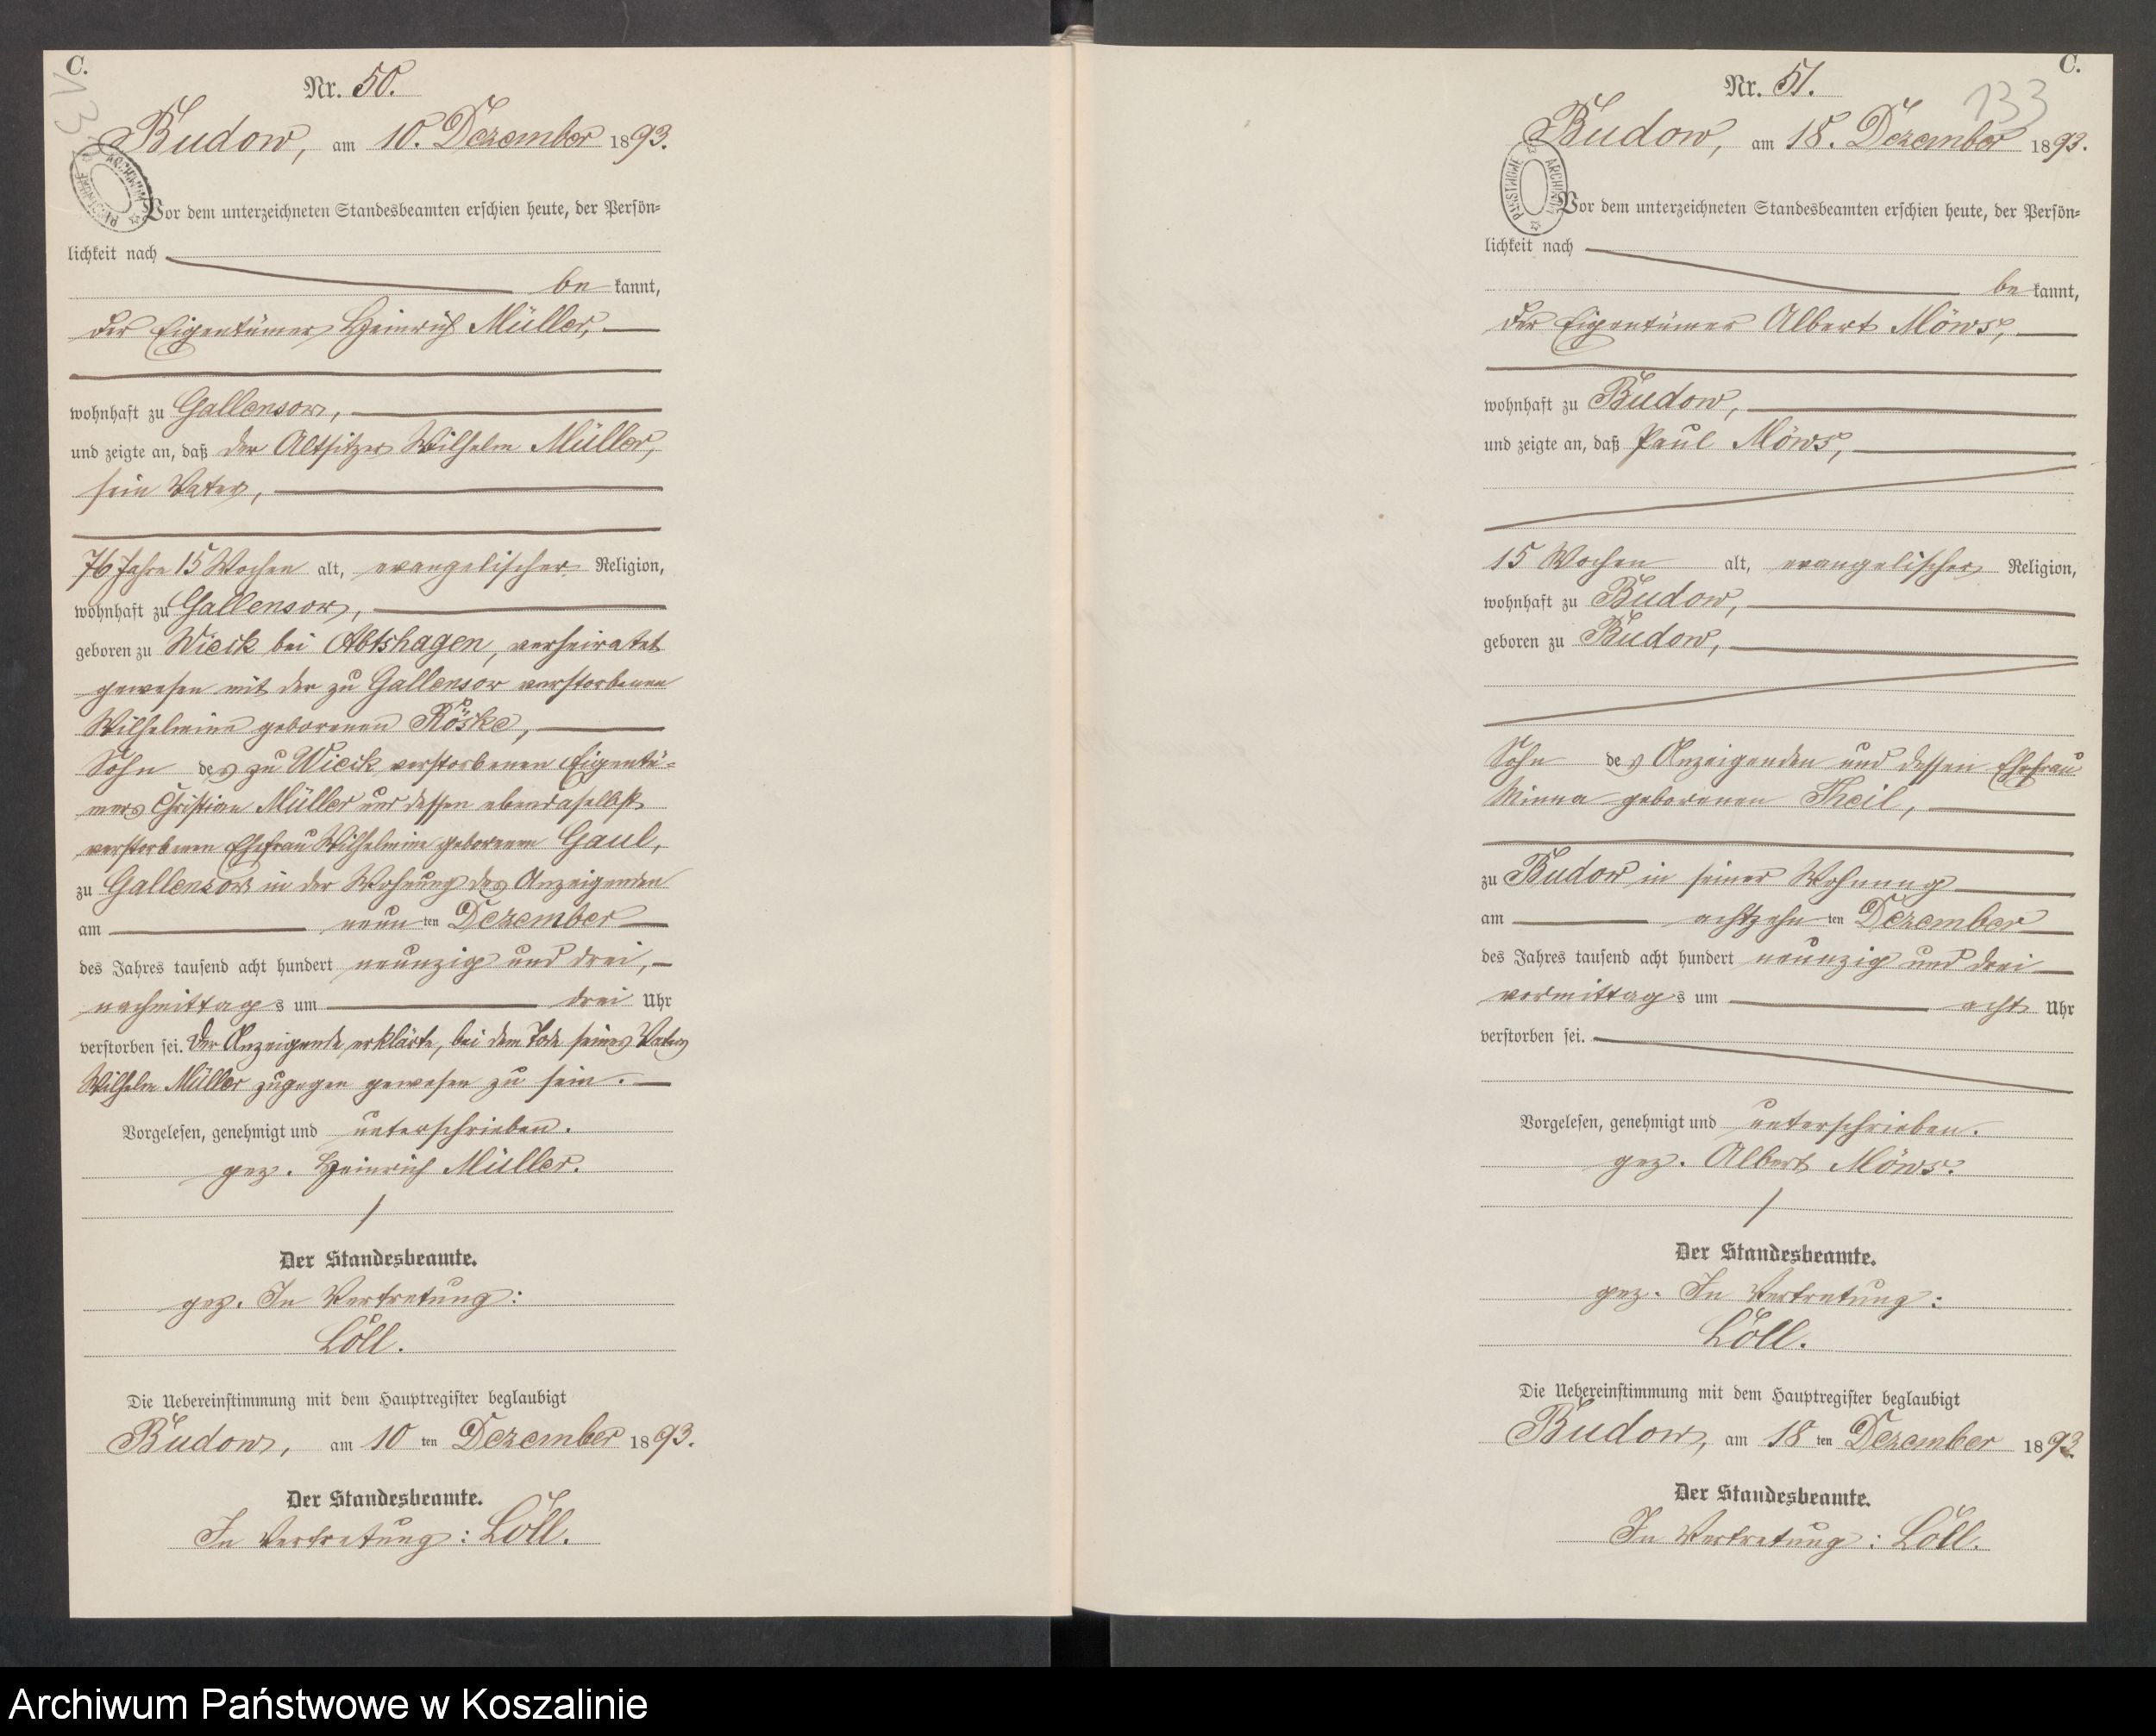 C.
132
Nr. 50.
Budow, am 10. Dezember 1893.
ARCHIWUM PAŃSTWOWE
Vor dem unterzeichneten Standesbeamten erschien heute, der Persön-
lichkeit nach
be kannt,
der Eigentümer Heinrich Müller,
wohnhaft zu Gallensow,
und zeigte an, daß der Altsitzer Wilhelm Müller,
sein Vater,
76 Jahre 15 Wochen alt, evangelischer Religion,
wohnhaft zu Gallensow,
geboren zu Wieck bei Abtshagen, verheiratet
gewesen mit der zu Gallensow verstorbenen
Wilhelmine geborenen Röske,
Sohn des zu Wieck verstorbenen Eigentü-
mers Christian Müller und dessen ebendaselbst
verstorbenen Ehefrau Wilhelmine geborenen Gaul,
zu Gallensow in der Wohnung des Anzeigenden
am neun ten Dezember
des Jahres tausend acht hundert neunzig und drei,
nachmittag s um drei Uhr
verstorben sei. Der Anzeigende erklärte, bei dem Tode seines Vaters
Wilhelm Müller zugegen gewesen zu sein.
Vorgelesen, genehmigt und unterschrieben.
gez. Heinrich Müller.
Der Standesbeamte.
gez. In Vertretung:
Löll.
Die Uebereinstimmung mit dem Hauptregister beglaubigt
Budow, am 10 ten Dezember 1893.
Der Standesbeamte.
In Vertretung: Löll.
C.
133
Nr. 51.
Budow, am 18. Dezember 1893.
ARCHIWUM PAŃSTWOWE
Vor dem unterzeichneten Standesbeamten erschien heute, der Persön-
lichkeit nach
be kannt,
der Eigentümer Albert Möws,
wohnhaft zu Budow,
und zeigte an, daß Paul Möws,
15 Wochen alt, evangelischer Religion,
wohnhaft zu Budow,
geboren zu Budow,
Sohn des Anzeigenden und dessen Ehefrau
Minna geborenen Theil,
zu Budow in seiner Wohnung
am achtzehn ten Dezember
des Jahres tausend acht hundert neunzig und drei
vormittag s um acht Uhr
verstorben sei.
Vorgelesen, genehmigt und unterschrieben.
gez. Albert Möws.
Der Standesbeamte.
gez. In Vertretung:
Löll.
Die Uebereinstimmung mit dem Hauptregister beglaubigt
Budow, am 18 ten Dezember 1893.
Der Standesbeamte.
In Vertretung: Löll.
Archiwum Państwowe w Koszalinie